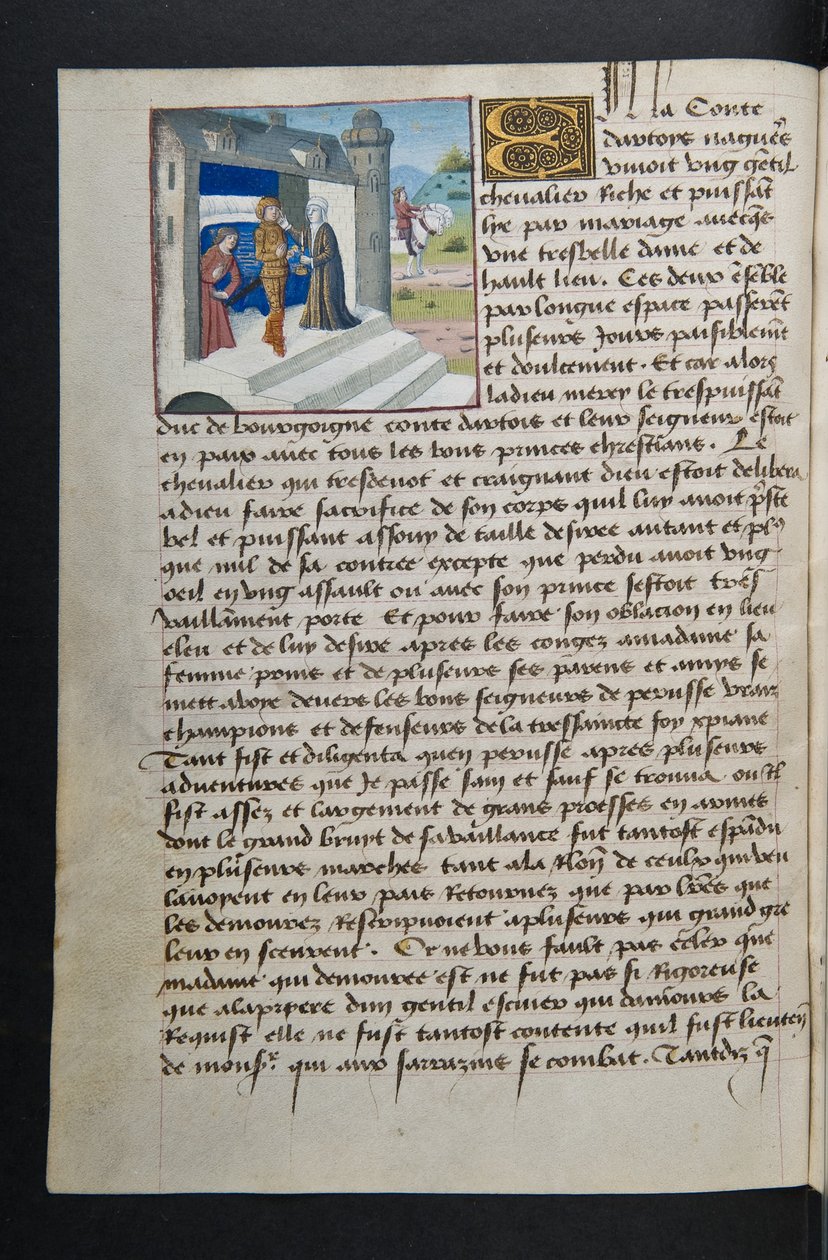 En la Conte
dartoys nagueres
vivoit ung gentil
chevalier Riche et puissant
lye par mariage avecques
une tresbelle dame et de
hault lieu. Ces deux ensemble
par longue espace passerent
pluseurs Jours paisiblement
et doulcement. Et car alors
la dieu mercy le trespuissant
duc de bourgoigne conte dartois et leur seigneur estoit
en paix avec tous les bons princes chrestians. Le
chevalier qui tresdevot et craignant dieu estoit delibera
a dieu faire sacrifice de son corps quil luy avoit preste
bel et puissant assouy de taille desiree autant et plus
que nul de sa contree excepte que perdu avoit ung
oeil en ung assault ou avec son prince sestoit tres
vaillament porte Et pour faire son oblacion en lieu
eleu et de luy desire apres les congez a madame sa
femme prins et de pluseurs ses parens et amys se
mett a voye devers les bons seigneurs de perusse vraiz
champions et defenseurs de la tressaincte foy xpiane
Tant fist et diligenta quen perusse apres pluseurs
adventures que Je passe sain et sauf se trouva ou Il
fist assez et largement de grans proesses en armes
dont le grand bruyt de sa vaillance fut tantost espandu
en pluseurs marches tant a la Relon de ceulx qui veu
lavoyent en leur pais Retournez que par lres que
les demourez Rescripvoient a pluseurs qui grand gre
leur en sceurent. Or ne vous fault pas celer que
madame qui demouree est ne fut pas si Rigoreuse
que a la pryere dun gentil escuier qui damours la
Requist elle ne fust tantost contente quil fust lieuten
de monsr. qui aux sarrazins se combat. Tantdiz q